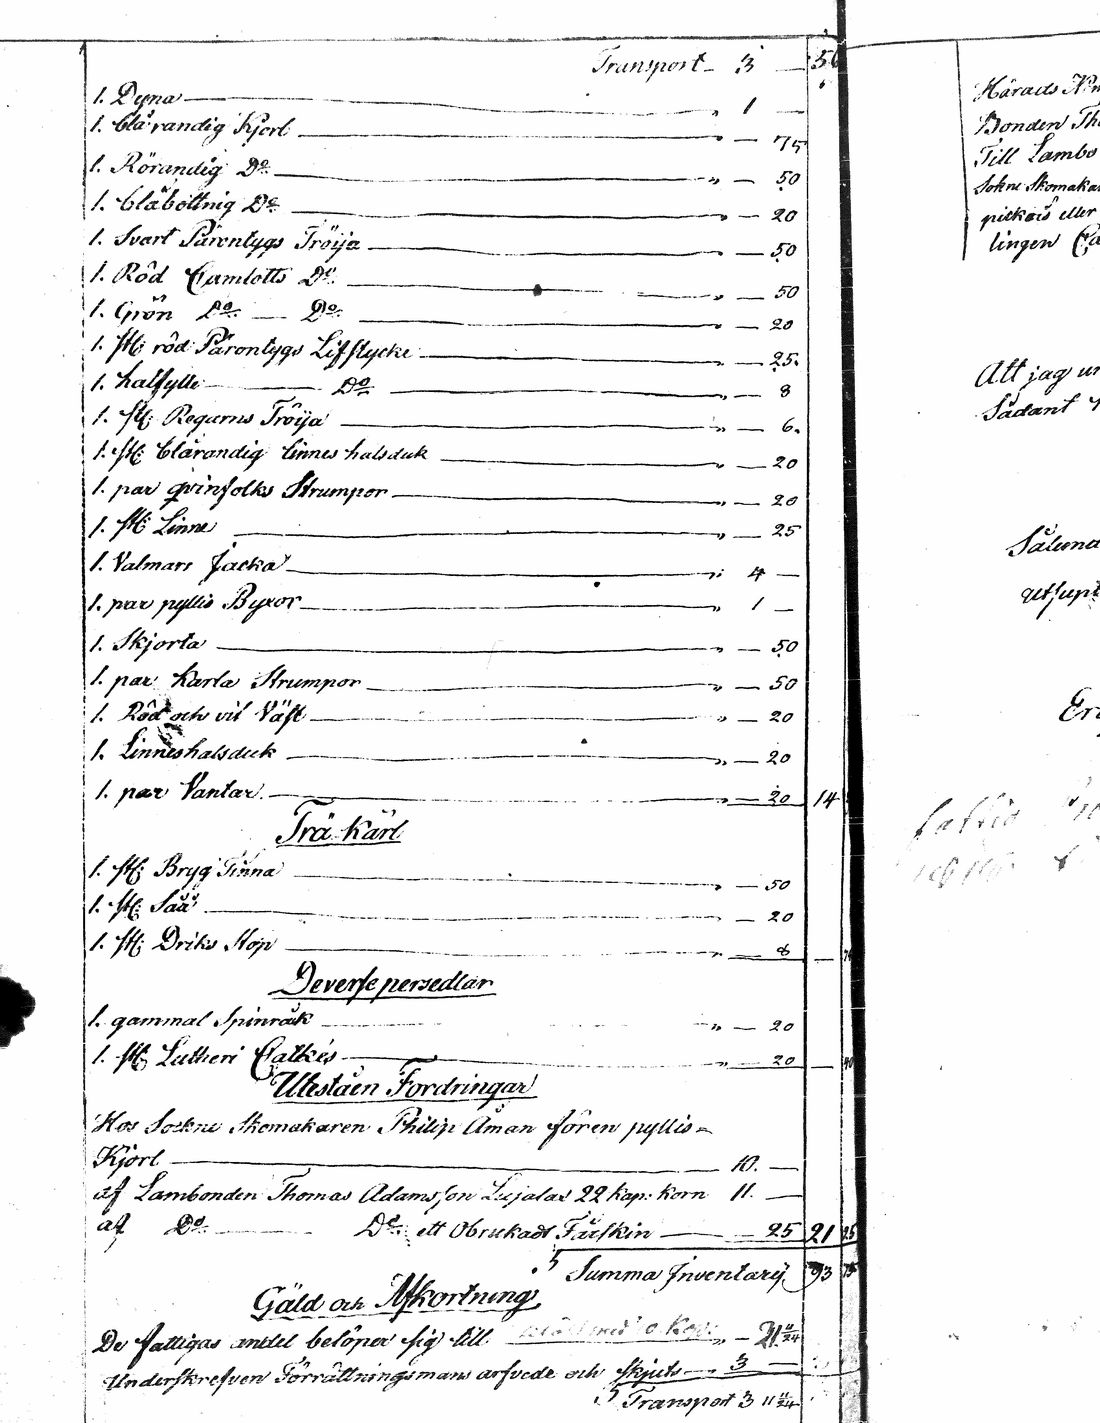 Transport 3 — 56
1. Dyna " 1 —
1. blårandig Kjorl — 75
1. Rörandig Do " — 50
1. blåbottnig Do " — 20
1. Svart Pärontygs Tröija " — 50
1. Röd Camlotts Do " — 50
1. Grön Do — Do " — 20
1. st: röd Pärontygs Lifstycke " — 25.
1. halfylle Do " — 8
1. st: Regarns Tröija " — 6.
1. st: blårandig linnes halsduk " — 20
1. par qvinfolks Strumpor " — 20
1. st: Linne " — 25
1. Valmars Jacka " 4 —
1. par pyllis Byxor " 1 —
1. Skjorta " — 50
1. par Karla Strumpor " — 50
1. Röd och vit Väst " — 20
1. Linneshalsduk " — 20
1. par Vantar " — 20 14
Trä Kärl
1. st: Bryg Tinna " — 50
1. st: Såå " — 20
1. st: Driks Stop " — 8 —
Deverse persedlar
1. gammal Spinråk " — 20
1. st: Lutheri Catkes " — 20 — 40
Utestäen Fordringar
Hos Sockne Skomakaren Philip Åman för en pyllis=
Kjorl 10. —
af Lambonden Thomas Adamsson Lujalax 22 kap: korn 11. —
af Do Do ett Obrukadt Fårskin — 25 21 25
Summa Inventarij 93
Gäld och Afkortning
De fattigas andel belöper sig till " — 21 11/24
Underskrefven Förrättningsmans arfvode och skjuts 3 —
Transport 3 11 11/24
Härads
Bonden Th
Till Lambo
Sokne Skomaka
eller
lingen
Att jag un
Sådant